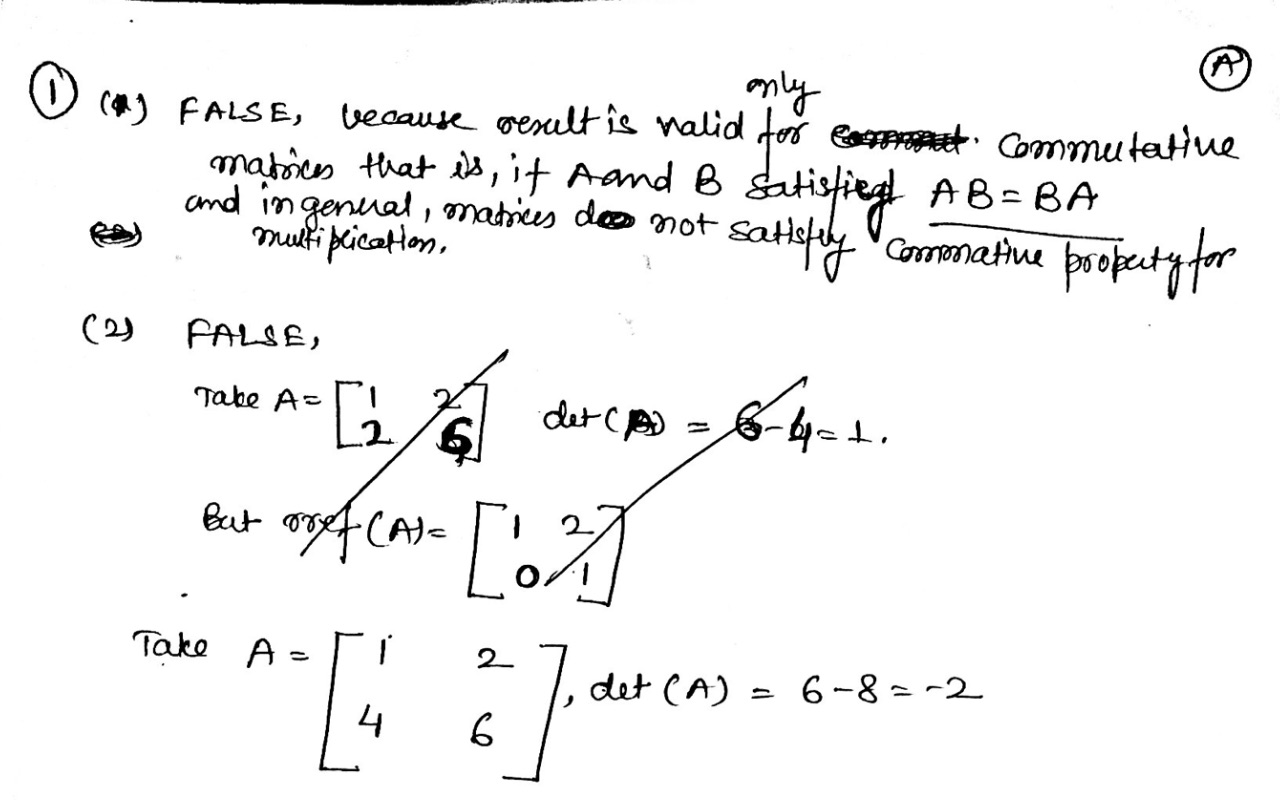 Ⓐ
① (1) FALSE, because result is valid only for commutative
matrices that is, if A and B satisfied AB = BA
and in general, matrices do not satisfy commative property for
multiplication.
(2) FALSE,
Take A = [1 2
2 6] det(A) = 6-4=1.
But rref(A) = [1 2
0 1]
Take A = [1 2
4 6], det(A) = 6-8=-2